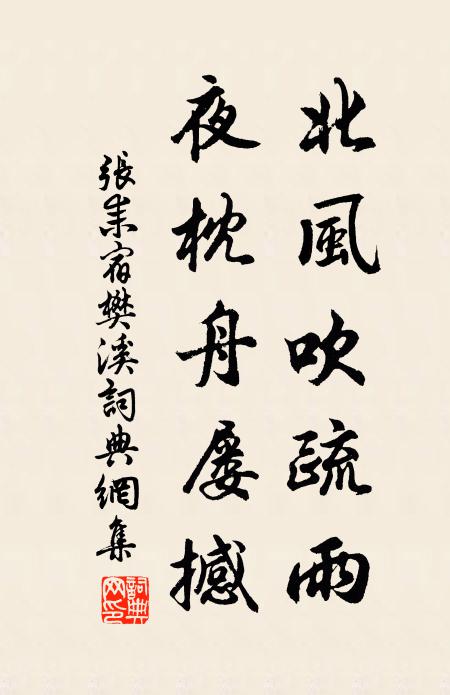 北風吹疏雨
夜枕舟屢撼
張耒宿樊溪詞典網集
詞典网印